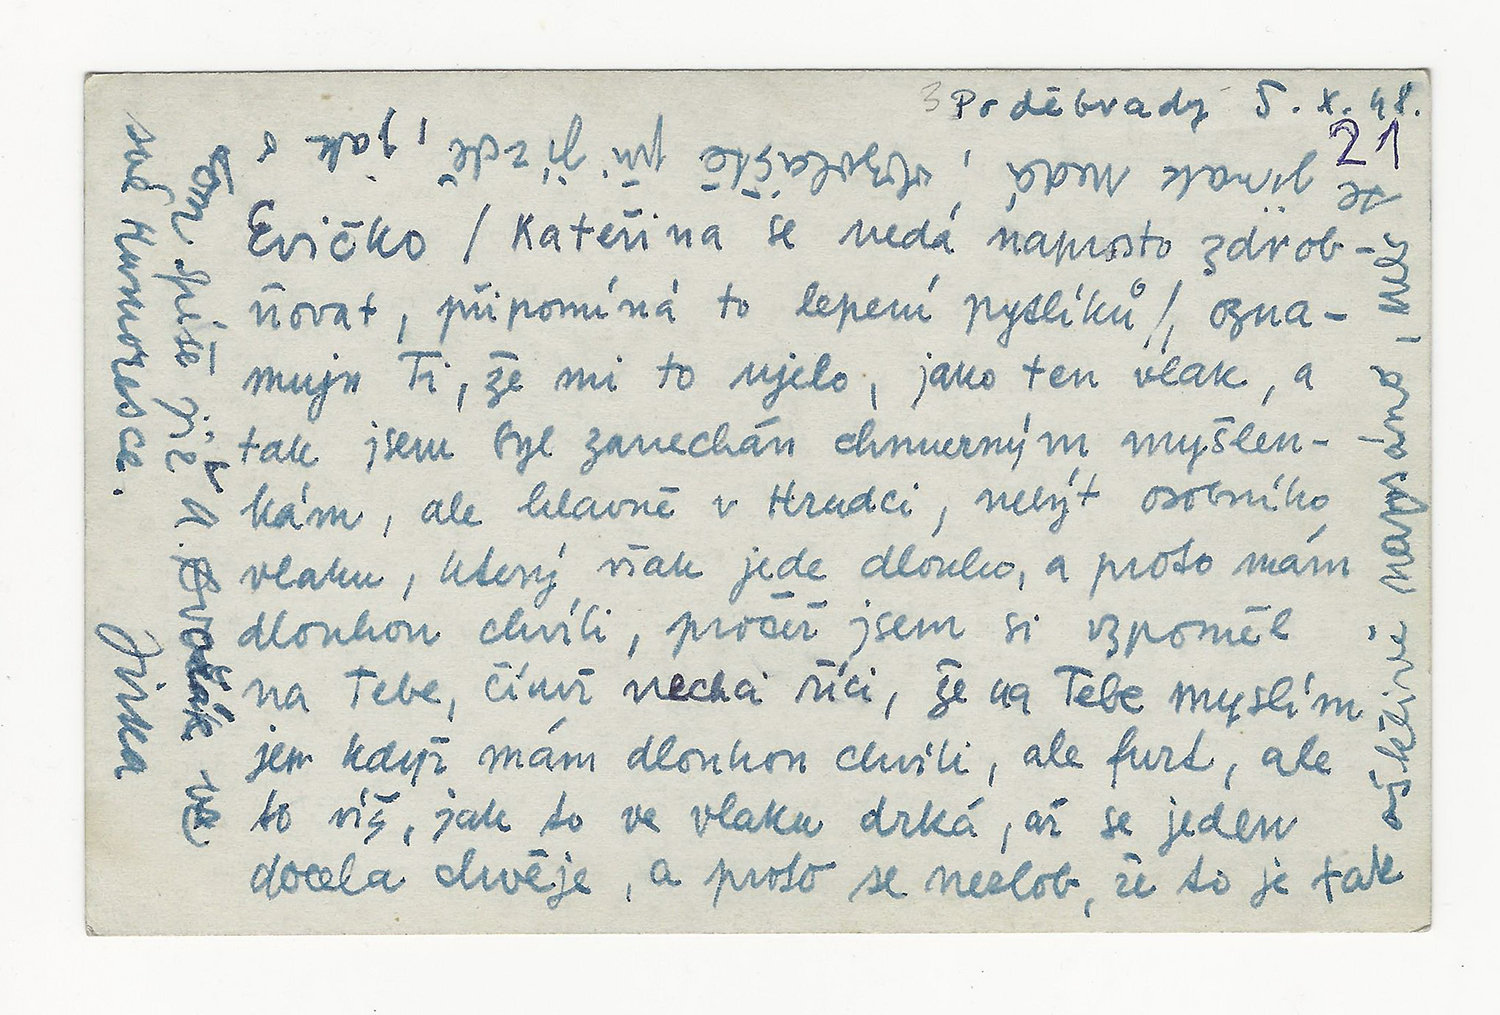 3 Poděbrady 5. X. 48.
21
Evičko / Kateřina se nedá naprosto zdrob-
ňovat, připomíná to lepení pytlíků /, ozna-
muju Ti, že mi to ujelo, jako ten vlak, a
tak jsem byl zanechán chmurným myšlen-
kám, ale hlavně v Hradci, nebýt osobního
vlaku, který však jede dlouho, a proto mám
dlouhou chvíli, pročež jsem si vzpoměl
na Tebe, čímž nechci říci, že na Tebe myslím
jen když mám dlouhou chvíli, ale furt, ale
to víš, jak to ve vlaku drká, až se jeden
docela chvěje, a proto se nezlob, že to je tak
ošklivě napsáno, než
se jinak nedá, obzvláště při jízdě, jak o
tom spíše již A. Dvořák ve
své Humoresce.
Jirka